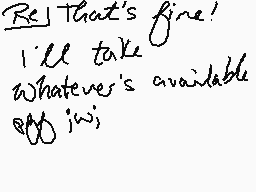 Re] That's fine!
I'll take
whatever's available
;w;